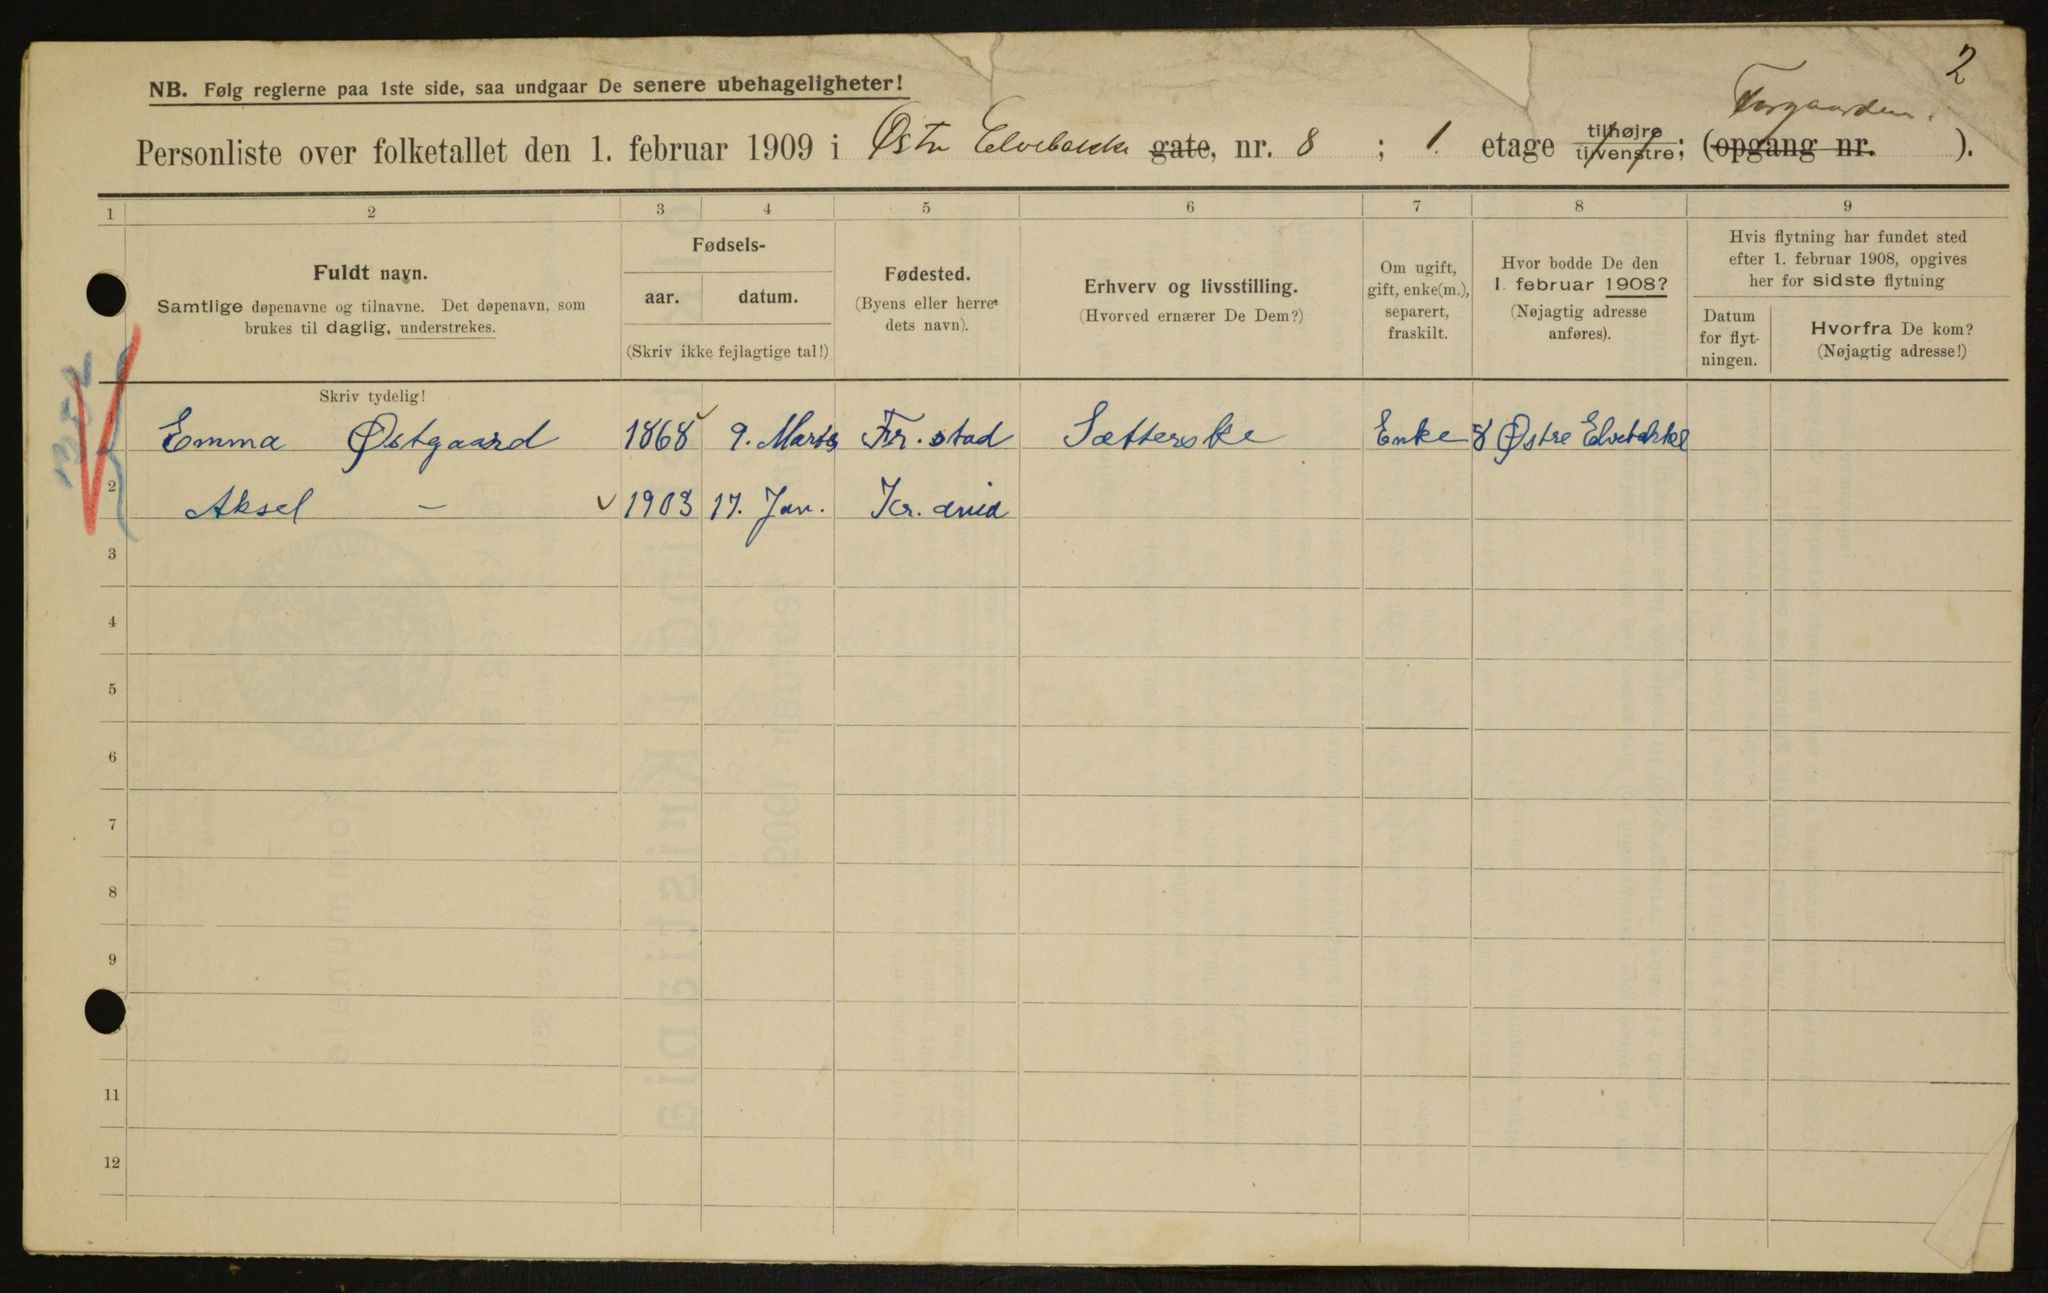 2
NB. Følg reglerne paa 1ste side, saa undgaar De senere ubehageligheter!
Forgaarden.
Personliste over folketallet den 1. februar 1909 i Østre Elvebakke gate, nr. 8 ; 1. etage tilhøjre tilvenstre; (opgang nr. ).
1 2 3 4 5 6 7 8 9
Fuldt navn.
Samtlige døpenavne og tilnavne. Det døpenavn, som
brukes til daglig, understrekes.
Fødsels-
aar. datum.
(Skriv ikke fejlagtige tal!)
Fødested.
(Byens eller herre-
dets navn).
Erhverv og livsstilling.
(Hvorved ernærer De Dem?)
Om ugift,
gift, enke(m.),
separert,
fraskilt.
Hvor bodde De den
1. februar 1908?
(Nøjagtig adresse
anføres).
Hvis flytning har fundet sted
efter 1. februar 1908, opgives
her for sidste flytning
Datum
for flyt-
ningen.
Hvorfra De kom?
(Nøjagtig adresse!)
Skriv tydelig!
Emma Østgaard 1868 9. Marts Fr. stad Sætterske Enke 8 Østre Elvebakke
2 Aksel – 1903 17. Jan. Kr. ania
3
4
5
6
7
8
9
11
12